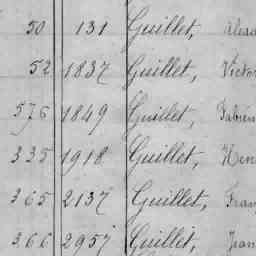 50 131 Guillet,
52 1837 Guillet, Victor
576 1849 Guillet, Fabien
335 1918 Guillet, Hen
365 2137 Guillet, Fran
366 2957 Guillet, Jean